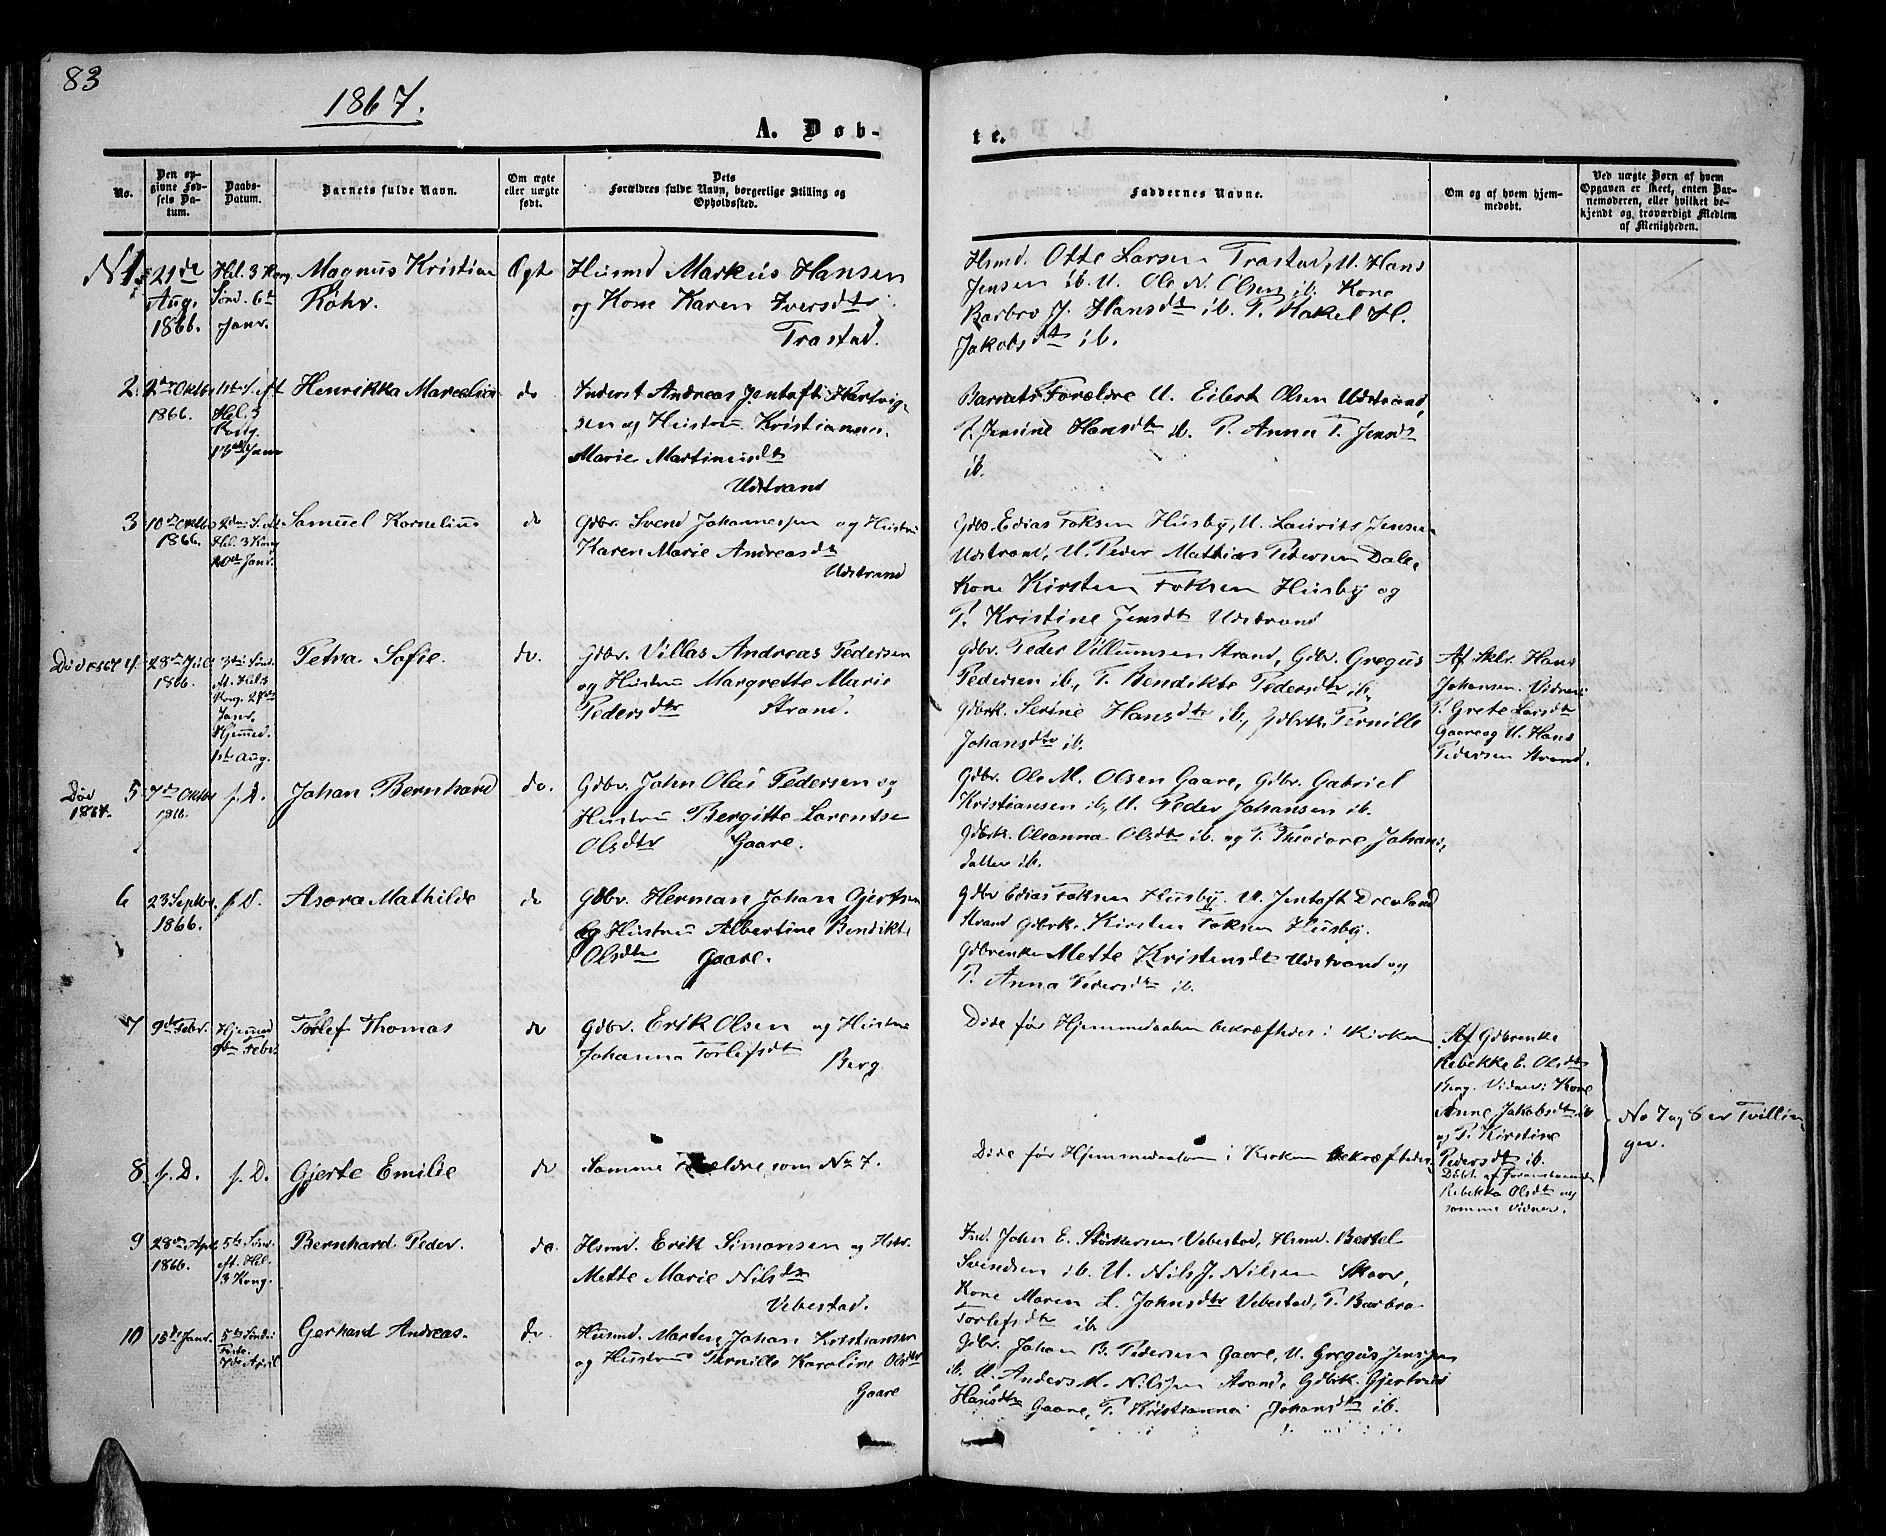 83
1867.
A. Døb-
te.
No.
Den op-
givne Fød-
sels Da-
tum.
Daabs-
Datum.
Barnets fulde Navn.
Om ægte
eller uægte
født.
Dets
Forældres fulde Navn, borgerlige Stilling og
Opholdssted.
Faddernes Navne.
Om og af hvem hjem-
medøbt.
Ved uægte Børn af hvem
Opgaven er skeet, enten Bar-
nemoderen, eller hvilket be-
kjendt og troværdigt Medlem
af Menigheden.
N 1.
21de
Aug.
1866.
Hel. 3 Kong.
Sønd. 6te
Janr.
Magnus Kristian
Røhr.
Ægte
Husmd Markus Hansen
og Kone Karen Iversdtr
Trastad.
Hsmd. Otte Larsen Trastad, U. Hans
Jensen ib. U. Ole N. Olsen ib. Kone
Barbro J. Hansdtr ib. P. Hakel H.
Jakobsdtr ib.
2.
2den Oktbr
1866.
1ste S. eft
Hel. 3
Kong.
13de Janr
Henrikka Marcelia
do
Inderst Andreas Jentoft Hartvig-
sen og Hustru Kristianna
Marie Martinusdtr
Udstrand
Barnets Forældre U. Eilert Olsen Udstrand,
P. Jensine Hansdtr ib. P. Anna T. Jensdtr
ib.
3
10de Oktbr
1866.
2den S. eft
Hel. 3 Kong
20de Janr.
Samuel Kornelius
do
Gdbr. Svend Johannessen og Hustru
Karen Marie Andreasdtr
Udstrand
Gdbr. Edias Foksen Husby, U. Laurits Jensen
Udstrand, U. Peder Mathias Pedersen Dale,
Kone Kirsten Foksen Husby og
P. Kristine Jensdtr Udstrand
Død 1867
4.
28de Juli
1866.
3die Sønd.
eft. Hel. 3
Kong. 27de
Janr.
Hjemmed.
1ste Aug.
Petra Sofie.
do.
Gdbr. Villas Andreas Pedersen
og Hustru Margrette Marie
Pedersdtr Strand.
Gdbr. Peder Villumsen Strand, Gdbr. Gregus
Pedersen ib., P. Bendikte Pedersdtr ib,
Gdbrk. Serine Hansdtr ib, Gdbrk. Pernille
Johansdtr ib.
Af Sklr. Hans
Johansen. Vidner:
P. Grete Larsdtr
Gaare og U. Hans
Pedersen Strand.
Død
1867.
5
7de Oktbr
1866.
s. D.
Johan Bernhard
do.
Gdbr. John Olai Pedersen og
Hustru Bergitte Larentse
Olsdtr Gaare.
Gdbr. Ole M. Olsen Gaare, Gdbr. Gabriel
Kristiansen ib, U. Peder Johansen ib.
Gdbrk. Oleanna Olsdtr ib. og P. Theodore Johans-
datter ib.
6
23 Septbr.
1866.
s. D.
Asora Mathilde
do
Gdbr. Herman Johan Gjertsen
og Hustru Albertine Bendikte
Olsdtr Gaare.
Gdbr Edias Foksen Husby. U. Jentoft Drevland
Strand Gdbrk. Kirsten Foksen Husby.
Gdbrenke Mette Kristensdtr Udstrand og
P. Anna Pedersdtr ib.
7
9de Febr.
Hjemmed
9de Febr
Torlef Thomas
do
Gdbr. Erik Olsen og Hustru
Johanna Torlefsdtr
Berg
Døde før Hjemmedaaben bekræftedes i Kirken
Af Gdbrenke
Rebekke E. Olsdtr
Berg. Vidner: Kone
Anne Jakobsdtr ib
og P. Kirstine
Pedersdtr ib.
No 7 og 8 er Tvillin-
ger.
8
s. D.
s. D.
Gjerte Emilie
do
Samme Forældre som No 7.
Døde før Hjemmedaaben i Kirken bekræftedes
Døbt af foranstaaende
Rebekka Olsdtr og
samme Vidner.
9
28de Apr.
1866.
5te Sønd.
eft. Hel.
3 Kong.
Bernhard Peder.
do.
Hsmd. Erik Simonsen og Hstr.
Mette Marie Nilsdtr
Vebestad.
Ind. John E. Størkersen Vebestad, Hsmd. Bertel
Svendsen ib. U. Nils J. Nilsen Skaar,
Kone Maren L. Johnsdtr Vebestad, P. Barbra
Torlefsdtr ib.
10
15de Janr.
5te Sønd. i
Faste.
7de April
Gerhard Andreas.
do.
Husmd. Martin Johan Kristiansen
og Hustru Pernille Karoline Olsdtr
Gaare
Gdbr. Johan B. Pedersen Gaare, U. Gregus Jenssen
ib. U. Anders M. Nilssen Strand, Gdbrk. Gjertrud
Hansdtr Gaare, P. Kristianna Johansdtr ib.